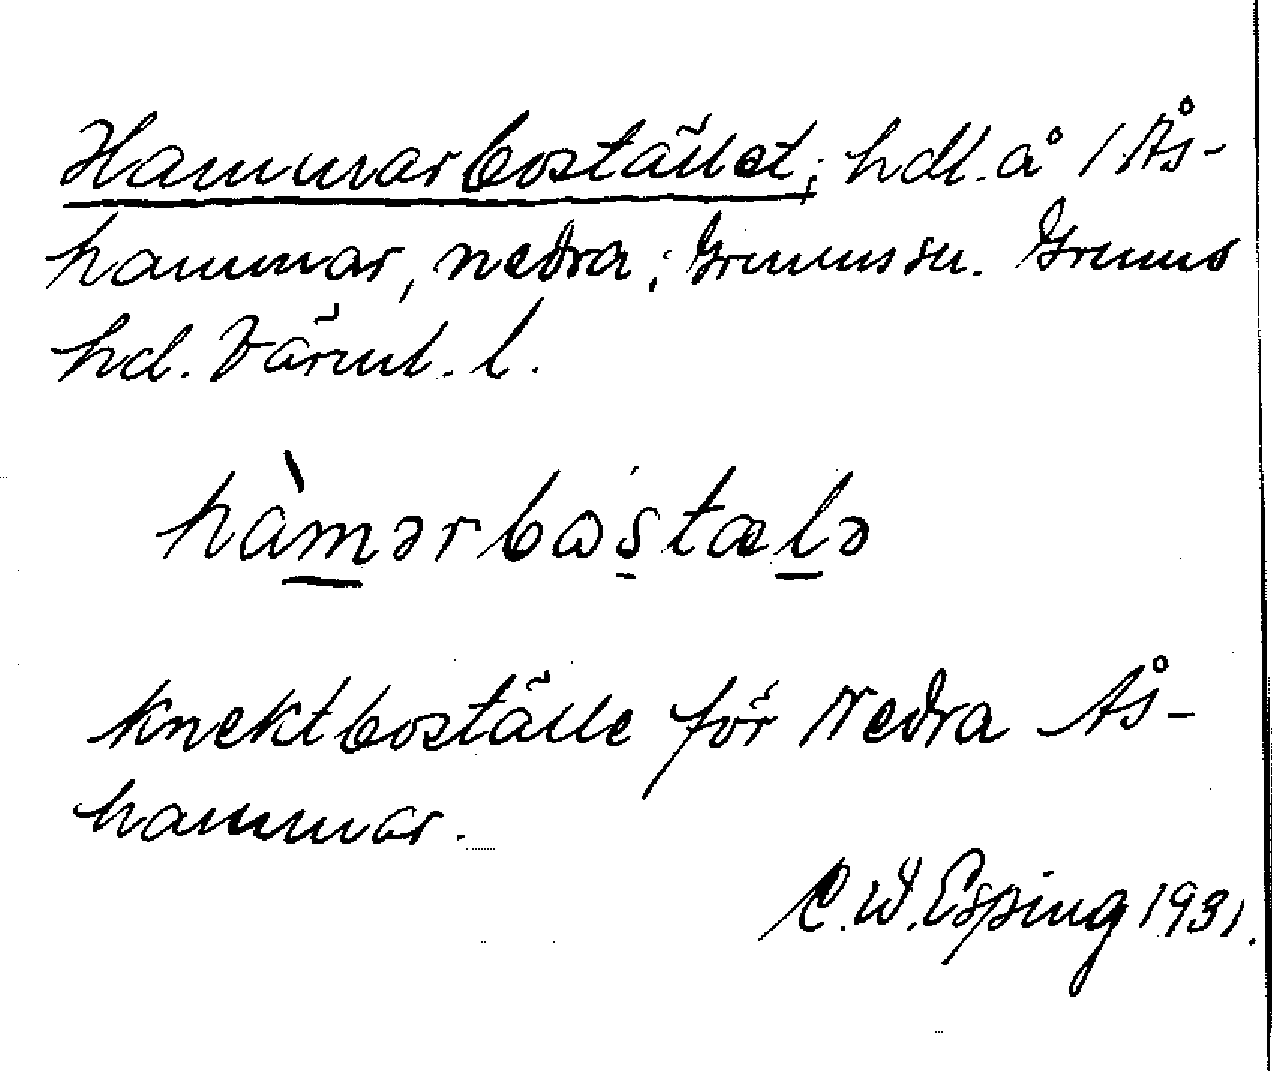 Hammarbostället; hdl. å 1 Ås-
hammar, nedra; Grums sn. Grums
hd. Värml. l.
hàmərbɷstælə
knektboställe för Nedra Ås-
hammar.
C. W. Esping 1931.